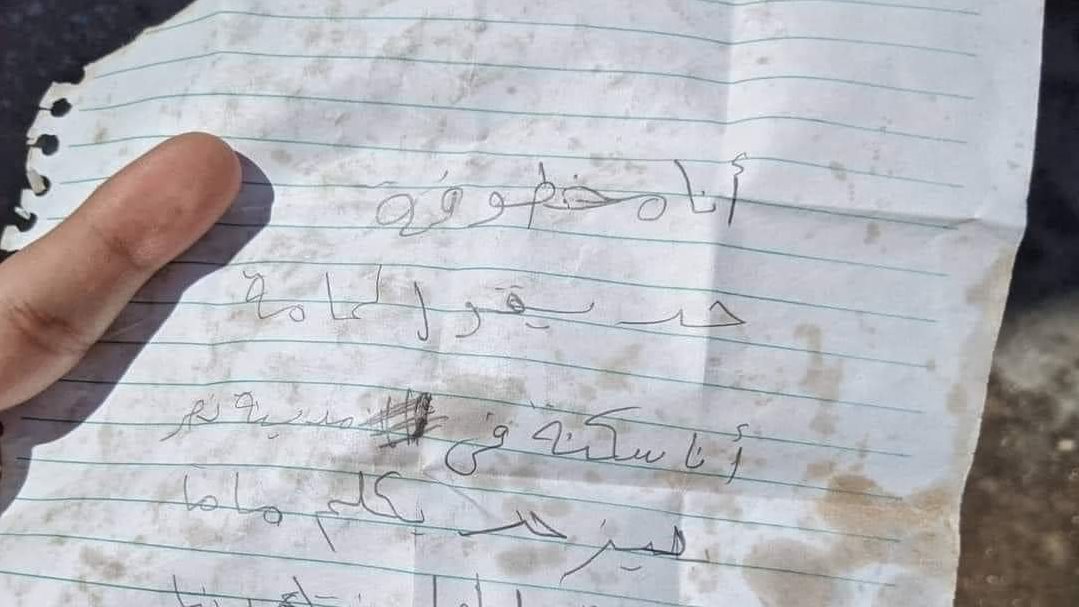 أنا مخطوفة
حد يقول لمامة
أنا سكنة في مدينة نصر
حد يكلم ماما